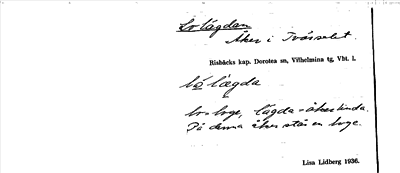 Lo lågdan
Åker i Tvåsselet.
Risbäcks kap. Dorotea sn, Vilhelmina tg, Vbt. l.
bó lægda
bo = boge, lågda = åkerlinda.
På denna åker står en boge.
Lisa Lidberg 1936.